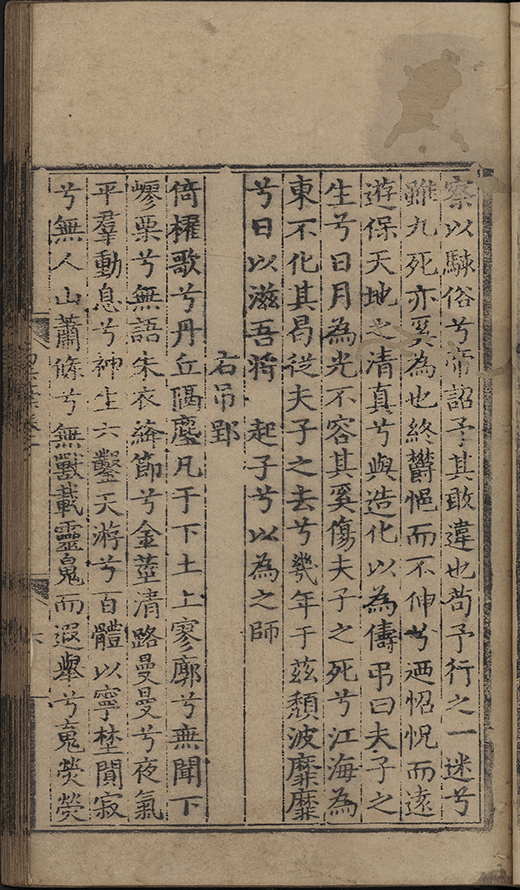 察以駭俗兮帝詔予其敢違也苟予行之一迷兮
雖九死亦奚為也終欝悒而不伸兮廼怊怳而遠
遊保天地之清真兮與造化以為儔弔曰夫子之
生兮日月為光不容其奚傷夫子之死兮江海為
東不化其曷從夫子之去兮幾年于茲頹波靡靡
兮日以滋吾將起子兮以為之師
右吊郢
倚櫂歌兮丹丘隔塵凡于下土上寥廓兮無聞下
嵺栗兮無語朱衣絳節兮金莖清路曼曼兮夜氣
平羣動息兮神生六鑿天游兮百體以寧埜闃寂
兮無人山蕭條兮無獸載靈䰟而遐舉兮䰟熒熒